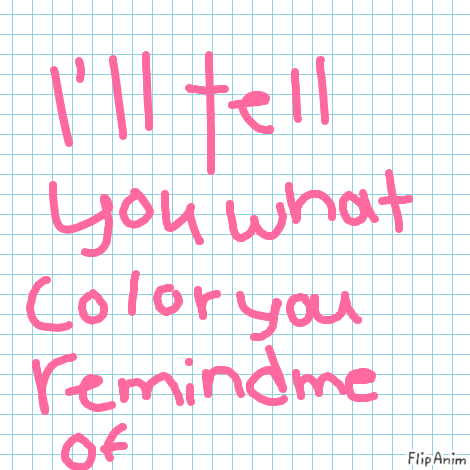 I'll tell
you what
color you
remind me
of
FlipAnim